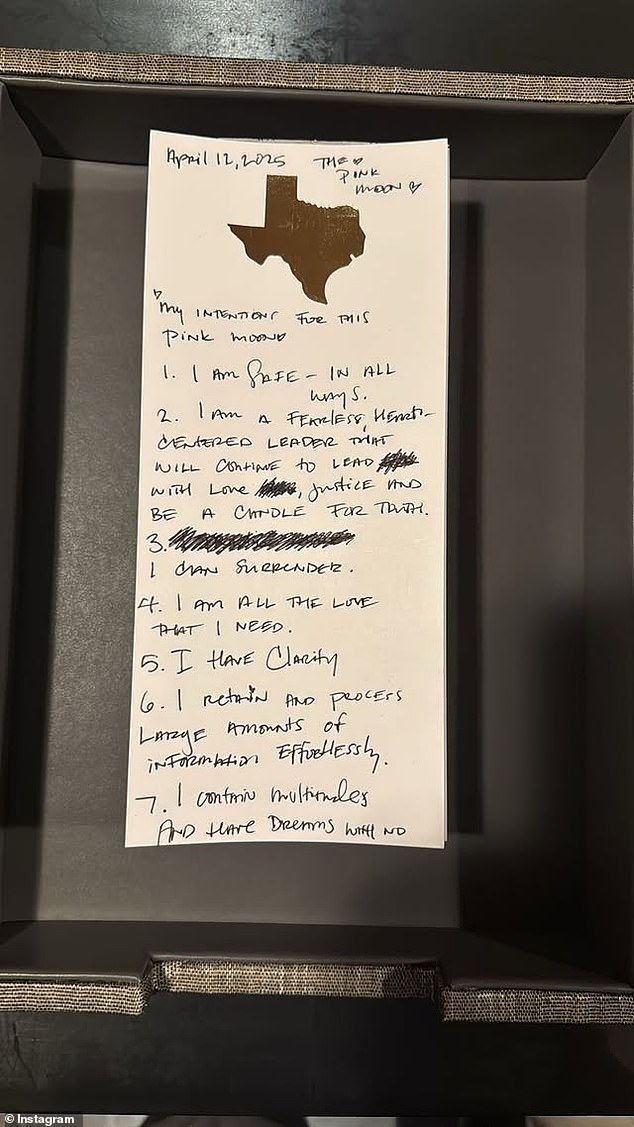 April 12, 2025 THE
PINK
MOON
My INTENTIONS FOR THIS
PINK MOON
1. I AM SAFE – IN ALL
WAYS.
2. I AM A FEARLESS, HEART-
CENTERED LEADER THAT
WILL CONTINUE TO LEAD
WITH LOVE, JUSTICE AND
BE A CANDLE FOR TRUTH.
3.
I CAN SURRENDER.
4. I AM ALL THE LOVE
THAT I NEED.
5. I HAVE Clarity
6. I RETAIN AND PROCESS
LARGE AMOUNTS OF
INFORMATION EFFORTLESSLY.
7. I CONTAIN multitudes
AND HAVE DREAMS WITH NO
© Instagram